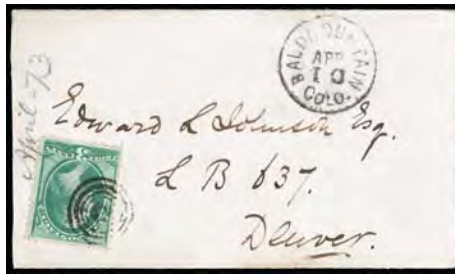 BALD MOUNTAIN
APR
10
COLO.
April-73
Edward L Johnson Esq.
L B 637.
Denver.